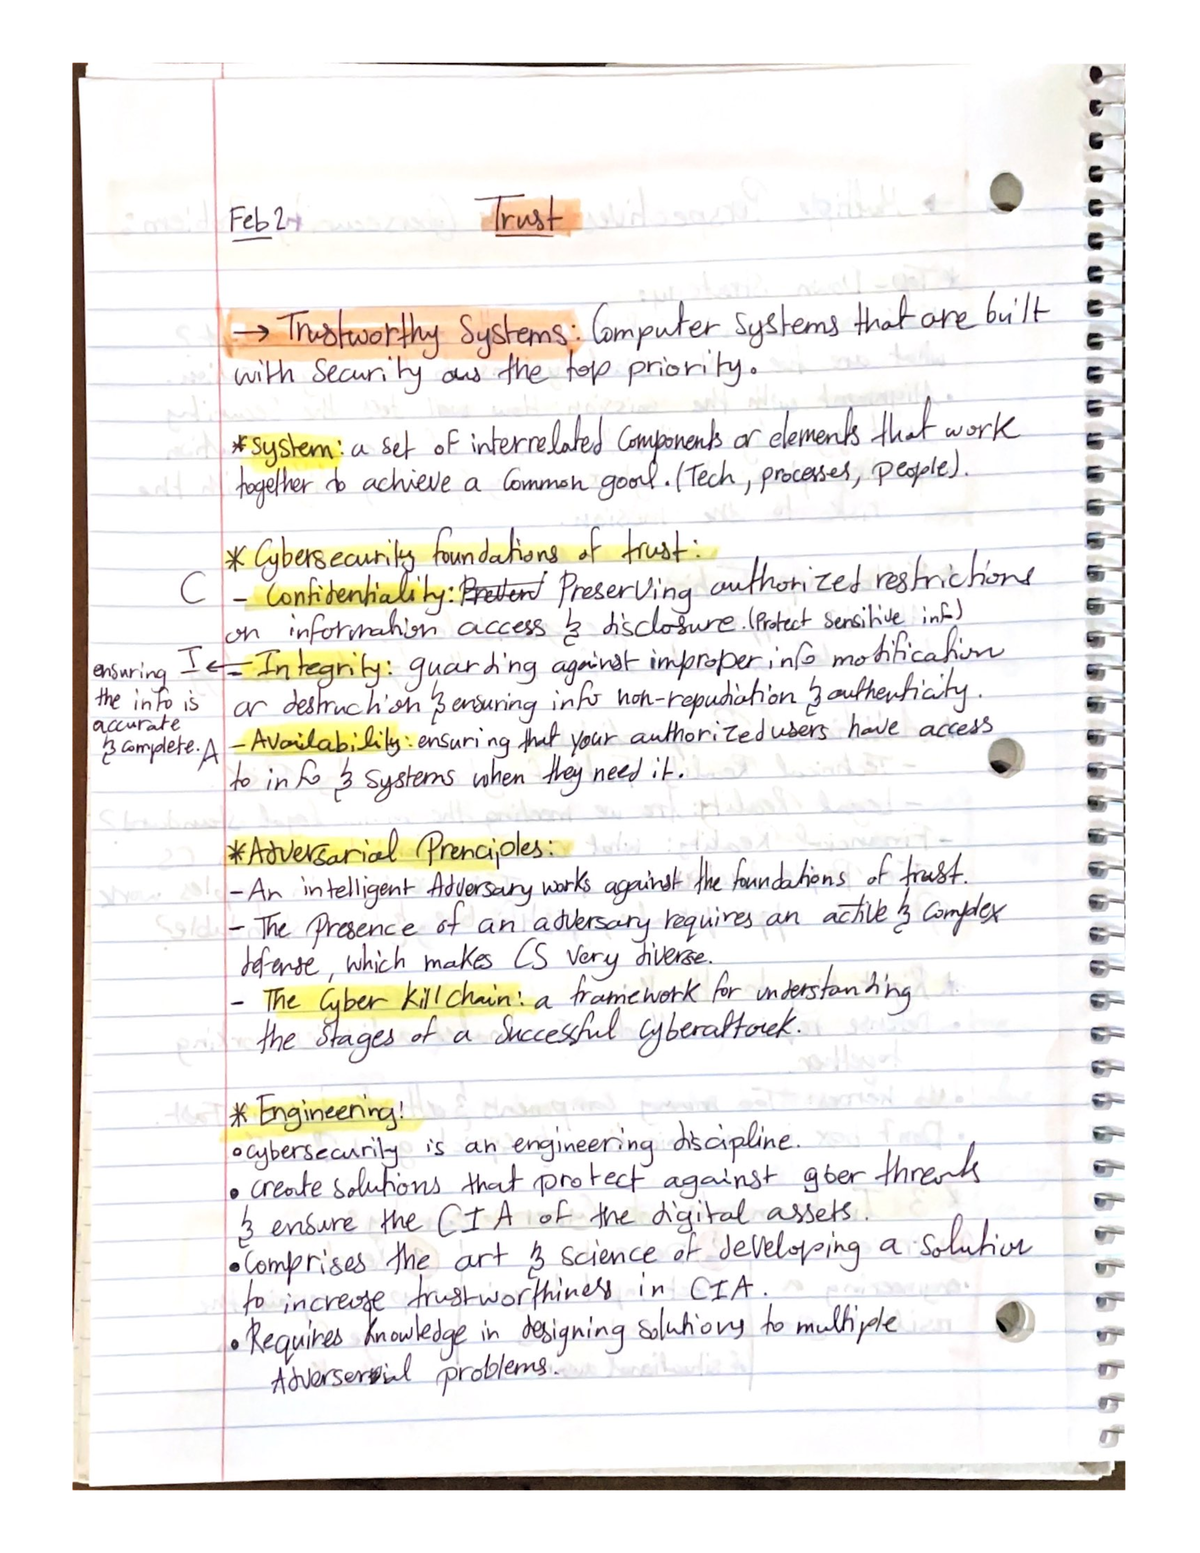 Feb 2
Trust
→ Trustworthy Systems: Computer Systems that are built
with Security as the top priority.
* System: a set of interrelated Components or elements that work
together to achieve a Common goal. (Tech, processes, people).
* Cybersecurity foundations of trust:
C - Confidentiality: Preserving authorized restrictions
on information access & disclosure. (Protect Sensitive inf)
I ← - Integrity: guarding against improper info modification
or destruction & ensuring info non-repudiation & authenticity.
ensuring
the info is
accurate
& complete.
A - Availability: ensuring that your authorized users have access
to info & Systems when they need it.
* Adversarial Prenciples:
- An intelligent Adversary works against the foundations of trust.
- The Presence of an adversary requires an active & Complex
defense, which makes CS very diverse.
- The Cyber Kill Chain: a framework for understanding
the Stages of a Successful Cyberattack.
* Engineering:
• cybersecurity is an engineering discipline.
• create solutions that protect against cyber threats
& ensure the CIA of the digital assets.
• Comprises the art & science of developing a solution
to increase trustworthiness in CIA.
• Requires Knowledge in designing solutions to multiple
Adverserial problems.